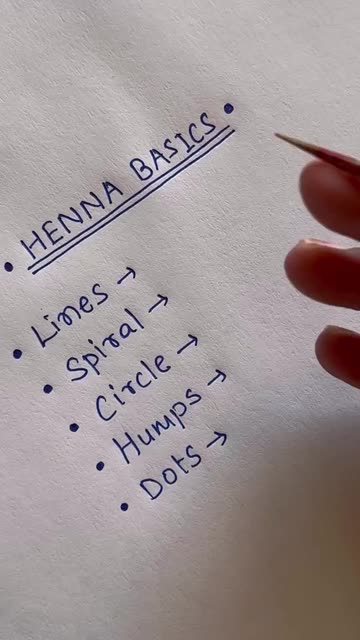 • HENNA BASICS •
• Lines →
• Spiral →
• Circle →
• Humps →
• Dots →